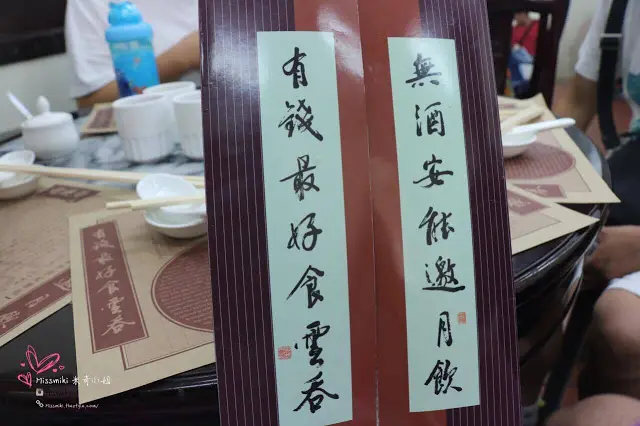 無酒安能邀月飲
有錢最好食雲吞
有錢最好食雲吞
Missmiki 米奇小姐